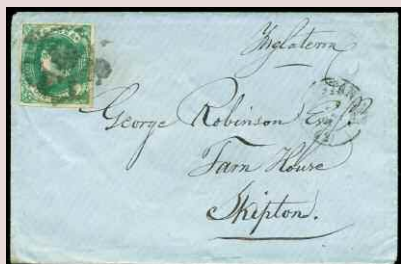 Inglaterra
George Robinson Esqr
Tarn House
Skipton.